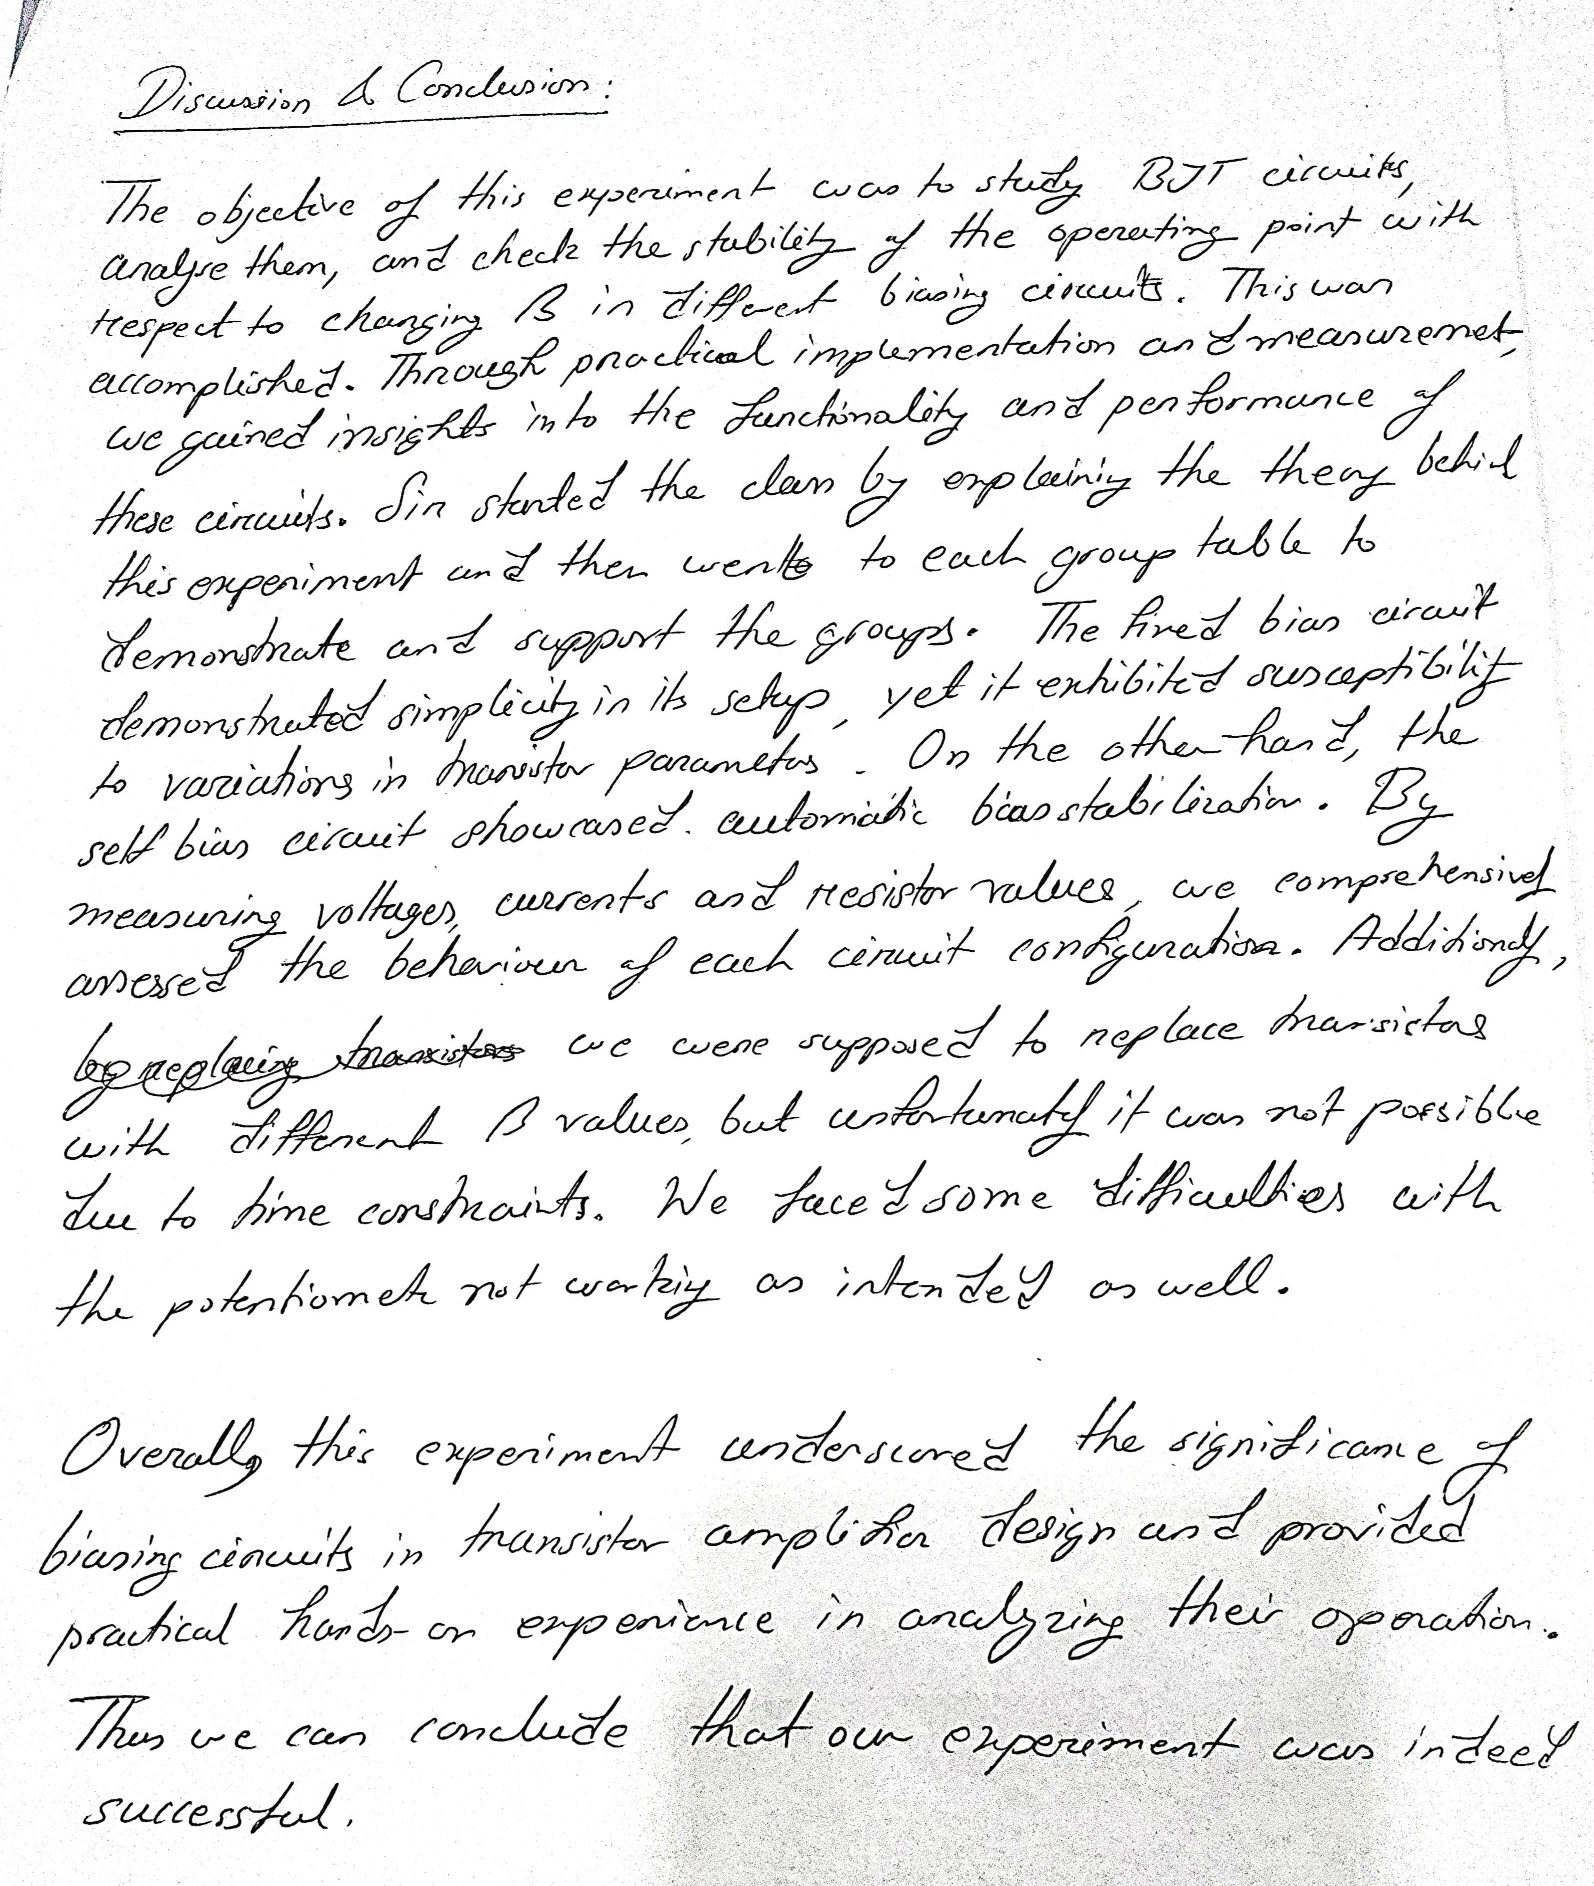 Discussion & Conclusion:
The objective of this experiment was to study BJT circuits,
analyse them, and check the stability of the operating point with
respect to changing β in different biasing circuits. This was
accomplished. Through practical implementation and measuremet,
we gained insights into the functionality and performance of
these circuits. Sir started the class by explaining the theory behind
this experiment and then went to each group table to
demonstrate and support the groups. The fixed bias circuit
demonstrated simplicity in its setup, yet it exhibited susceptibility
to variations in transistor parameters. On the other hand, the
self bias circuit showcased automatic bias stabilization. By
measuring voltages, currents and resistor values, we comprehensively
assessed the behaviour of each circuit configuration. Additionally,
by replacing transistors we were supposed to replace transistors
with different β values, but unfortunately it was not possible
due to time constraints. We faced some difficulties with
the potentiometer not working as intended as well.
Overall, this experiment underscored the significance of
biasing circuits in transistor amplifier design and provided
practical hands-on experience in analyzing their operation.
Thus we can conclude that our experiment was indeed
successful.